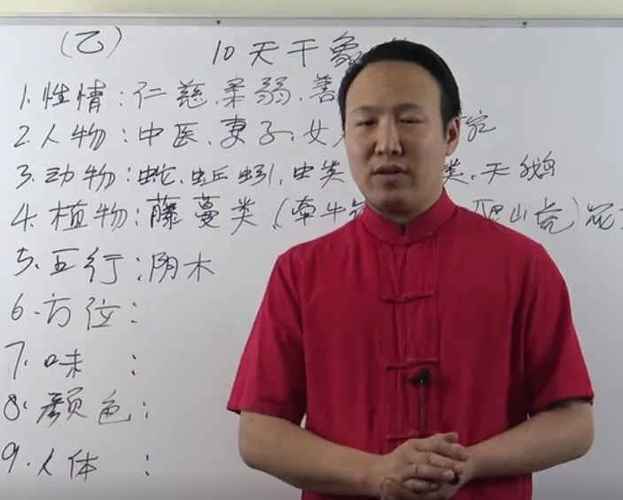 (乙) 10天干象
1.性情:仁慈、柔弱、善
2.人物:中医、妻子、女
3.动物:蛇、蚯蚓、虫类 类、天鹅
4.植物:藤蔓类(牵牛 爬山虎)花
5.五行:阴木
6.方位:
7.味:
8.颜色:
9.人体: